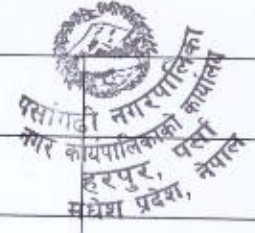 पर्सागढी नगरपालिका
नगर कार्यपालिकाको कार्यालय
हरपुर, पर्सा
मधेश प्रदेश, नेपाल